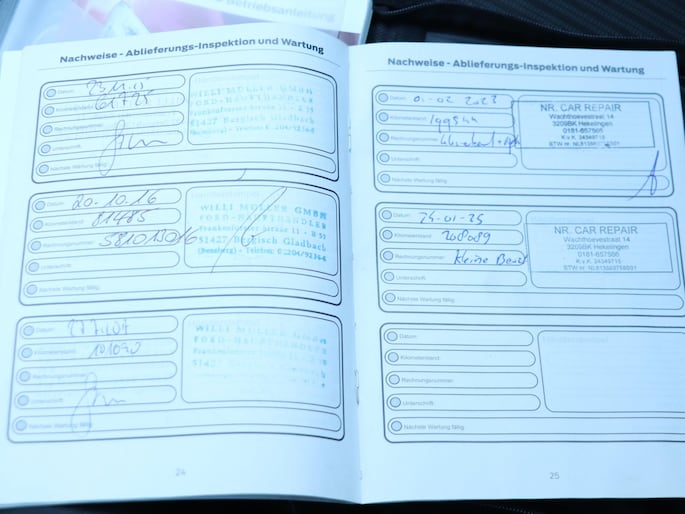 Betriebsanleitung
Nachweise - Ablieferungs-Inspektion und Wartung
Datum:
Kilometerstand: 61725
Rechnungsnummer:
Unterschrift:
Nächste Wartung fällig:
WILLI MÜLLER GMBH
FORD-HAUPTHÄNDLER
Frankenforster Strasse 11 - B 55
51427 Bergisch Gladbach
Datum: 20.10.16
Kilometerstand: 81485
Rechnungsnummer:
Unterschrift:
Nächste Wartung fällig:
WILLI MÜLLER GMBH
FORD-HAUPTHÄNDLER
Frankenforster Strasse 11 - B 55
51427 Bergisch Gladbach
(Bensberg) - Telefon: 0 2204/
Datum:
Kilometerstand: 101090
Rechnungsnummer:
Unterschrift:
Nächste Wartung fällig:
WILLI MÜLLER GMBH
FORD-HAUPTHÄNDLER
51427 Bergisch Gladbach
24
Nachweise - Ablieferungs-Inspektion und Wartung
Datum: 01-02 2023
Kilometerstand: 199544
Rechnungsnummer:
Unterschrift:
Nächste Wartung fällig:
NR. CAR REPAIR
Wachthoevestraat 14
3209BK Hekelingen
0181-657565
K.v.K. 24349715
BTW nr. NL8136
Datum: 25-01-25
Kilometerstand: 208089
Rechnungsnummer: Kleine Beurt
Unterschrift:
Nächste Wartung fällig:
NR. CAR REPAIR
Wachthoevestraat 14
3209BK Hekelingen
0181-657565
K.v.K. 24349715
BTW nr. NL8136
Datum:
Kilometerstand:
Rechnungsnummer:
Unterschrift:
Nächste Wartung fällig:
25